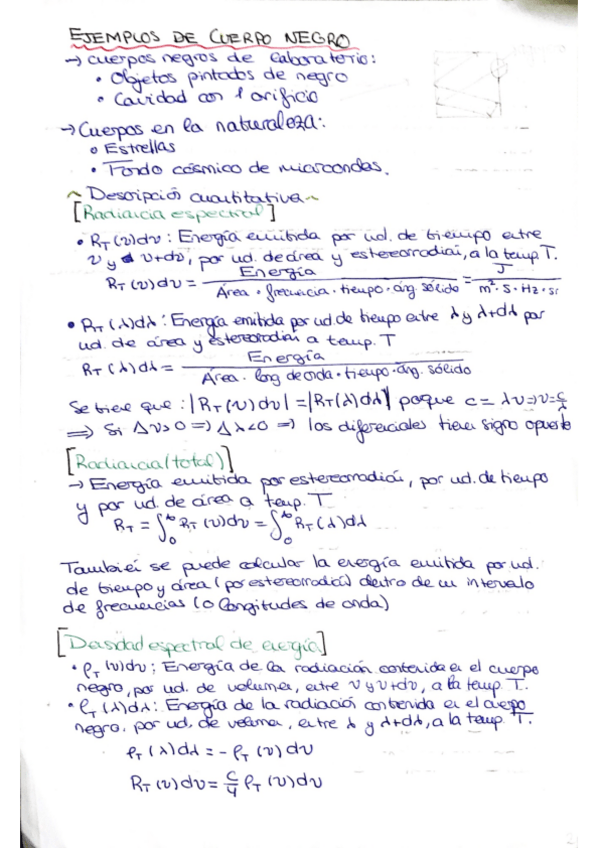 EJEMPLOS DE CUERPO NEGRO
→ cuerpos negros de laboratorio:
• Objetos pintados de negro
• Cavidad con 1 orificio
→ Cuerpos en la naturaleza:
• Estrellas
• Fondo cósmico de microondas.
~ Descripción cuantitativa ~
[Radiancia espectral]
• R_T(ν)dν: Energía emitida por ud. de tiempo entre
ν y ν+dν, por ud. de área y estereorradián, a la temp T.
R_T(ν)dν = Energía / Área · frecuencia · tiempo · áng. sólido = J / m²·s·Hz·sr
• R_T(λ)dλ: Energía emitida por ud. de tiempo entre λ y λ+dλ por
ud. de área y estereorradián a temp. T
R_T(λ)dλ = Energía / Área · long de onda · tiempo · áng. sólido
Se tiene que: |R_T(ν)dν| = |R_T(λ)dλ| porque c = λν ⇒ ν = c/λ
⇒ Si Δν>0 ⇒ Δλ<0 ⇒ los diferenciales tienen signo opuesto
[Radiancia (total)]
→ Energía emitida por estereorradián, por ud. de tiempo
y por ud. de área a temp. T
R_T = ∫₀^∞ R_T(ν)dν = ∫₀^∞ R_T(λ)dλ
También se puede calcular la energía emitida por ud.
de tiempo y área (por estereorradián) dentro de un intervalo
de frecuencias (o longitudes de onda)
[Densidad espectral de energía]
• ρ_T(ν)dν: Energía de la radiación contenida en el cuerpo
negro, por ud. de volumen, entre ν y ν+dν, a la temp. T.
• ρ_T(λ)dλ: Energía de la radiación contenida en el cuerpo
negro. por ud. de volumen, entre λ y λ+dλ, a la temp. T.
ρ_T(λ)dλ = -ρ_T(ν)dν
R_T(ν)dν = c/4 ρ_T(ν)dν